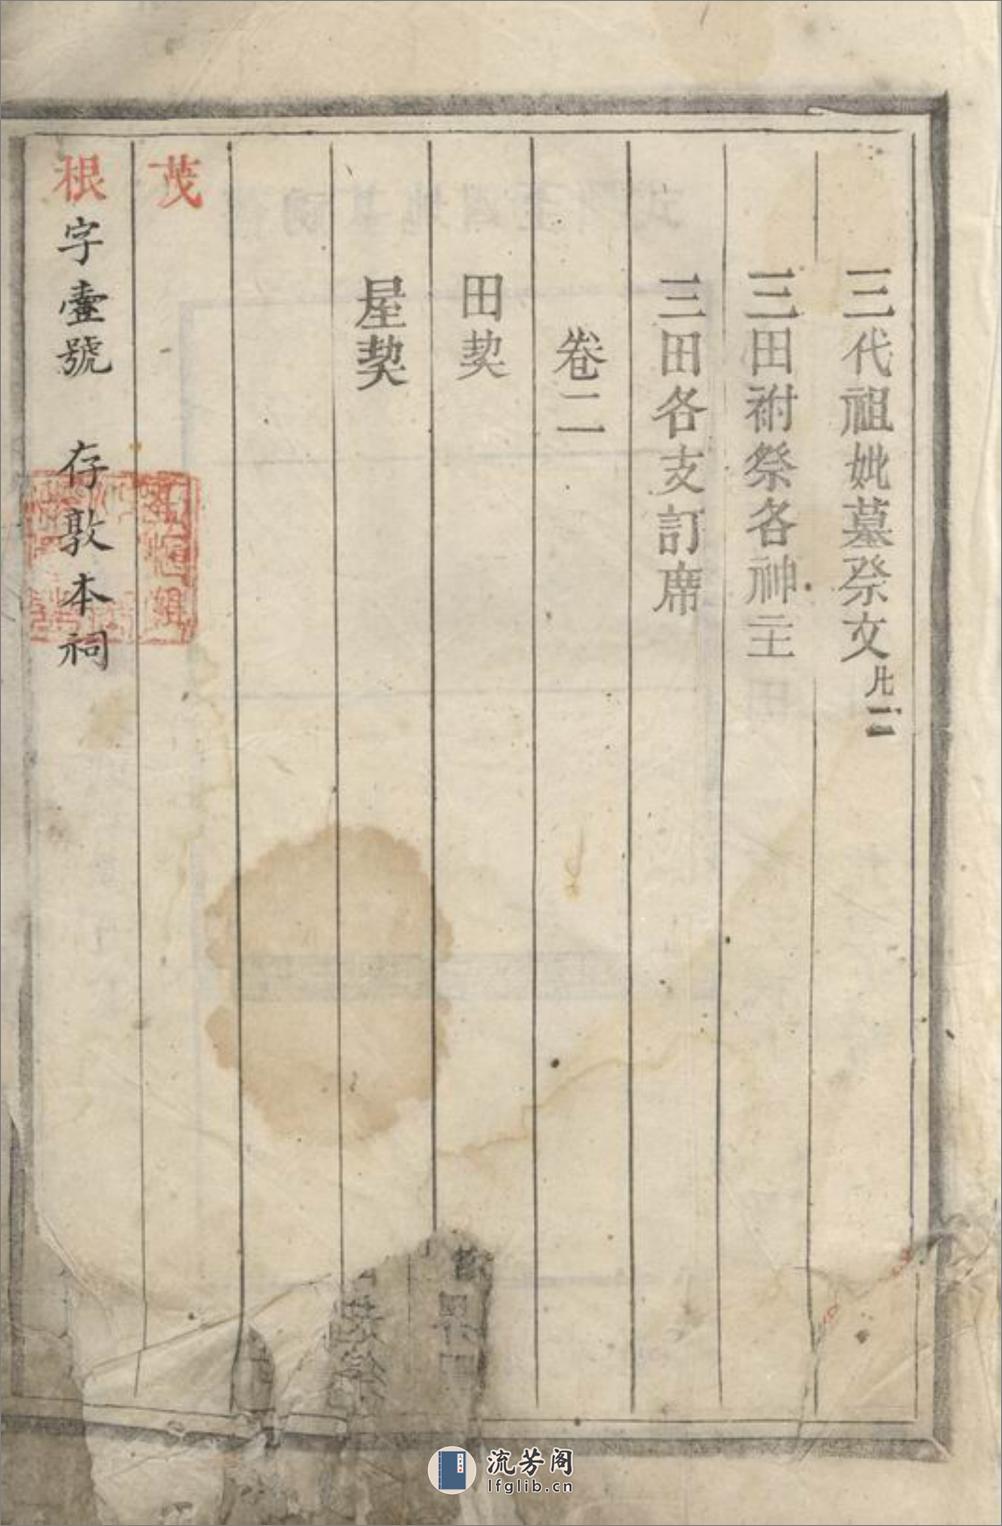 三代祖妣墓祭文凡二
三田祔祭各神主
三田各支訂席
卷二
田契
屋契
茂
根字壹號 存敦本祠
流芳阁
lfglib.cn